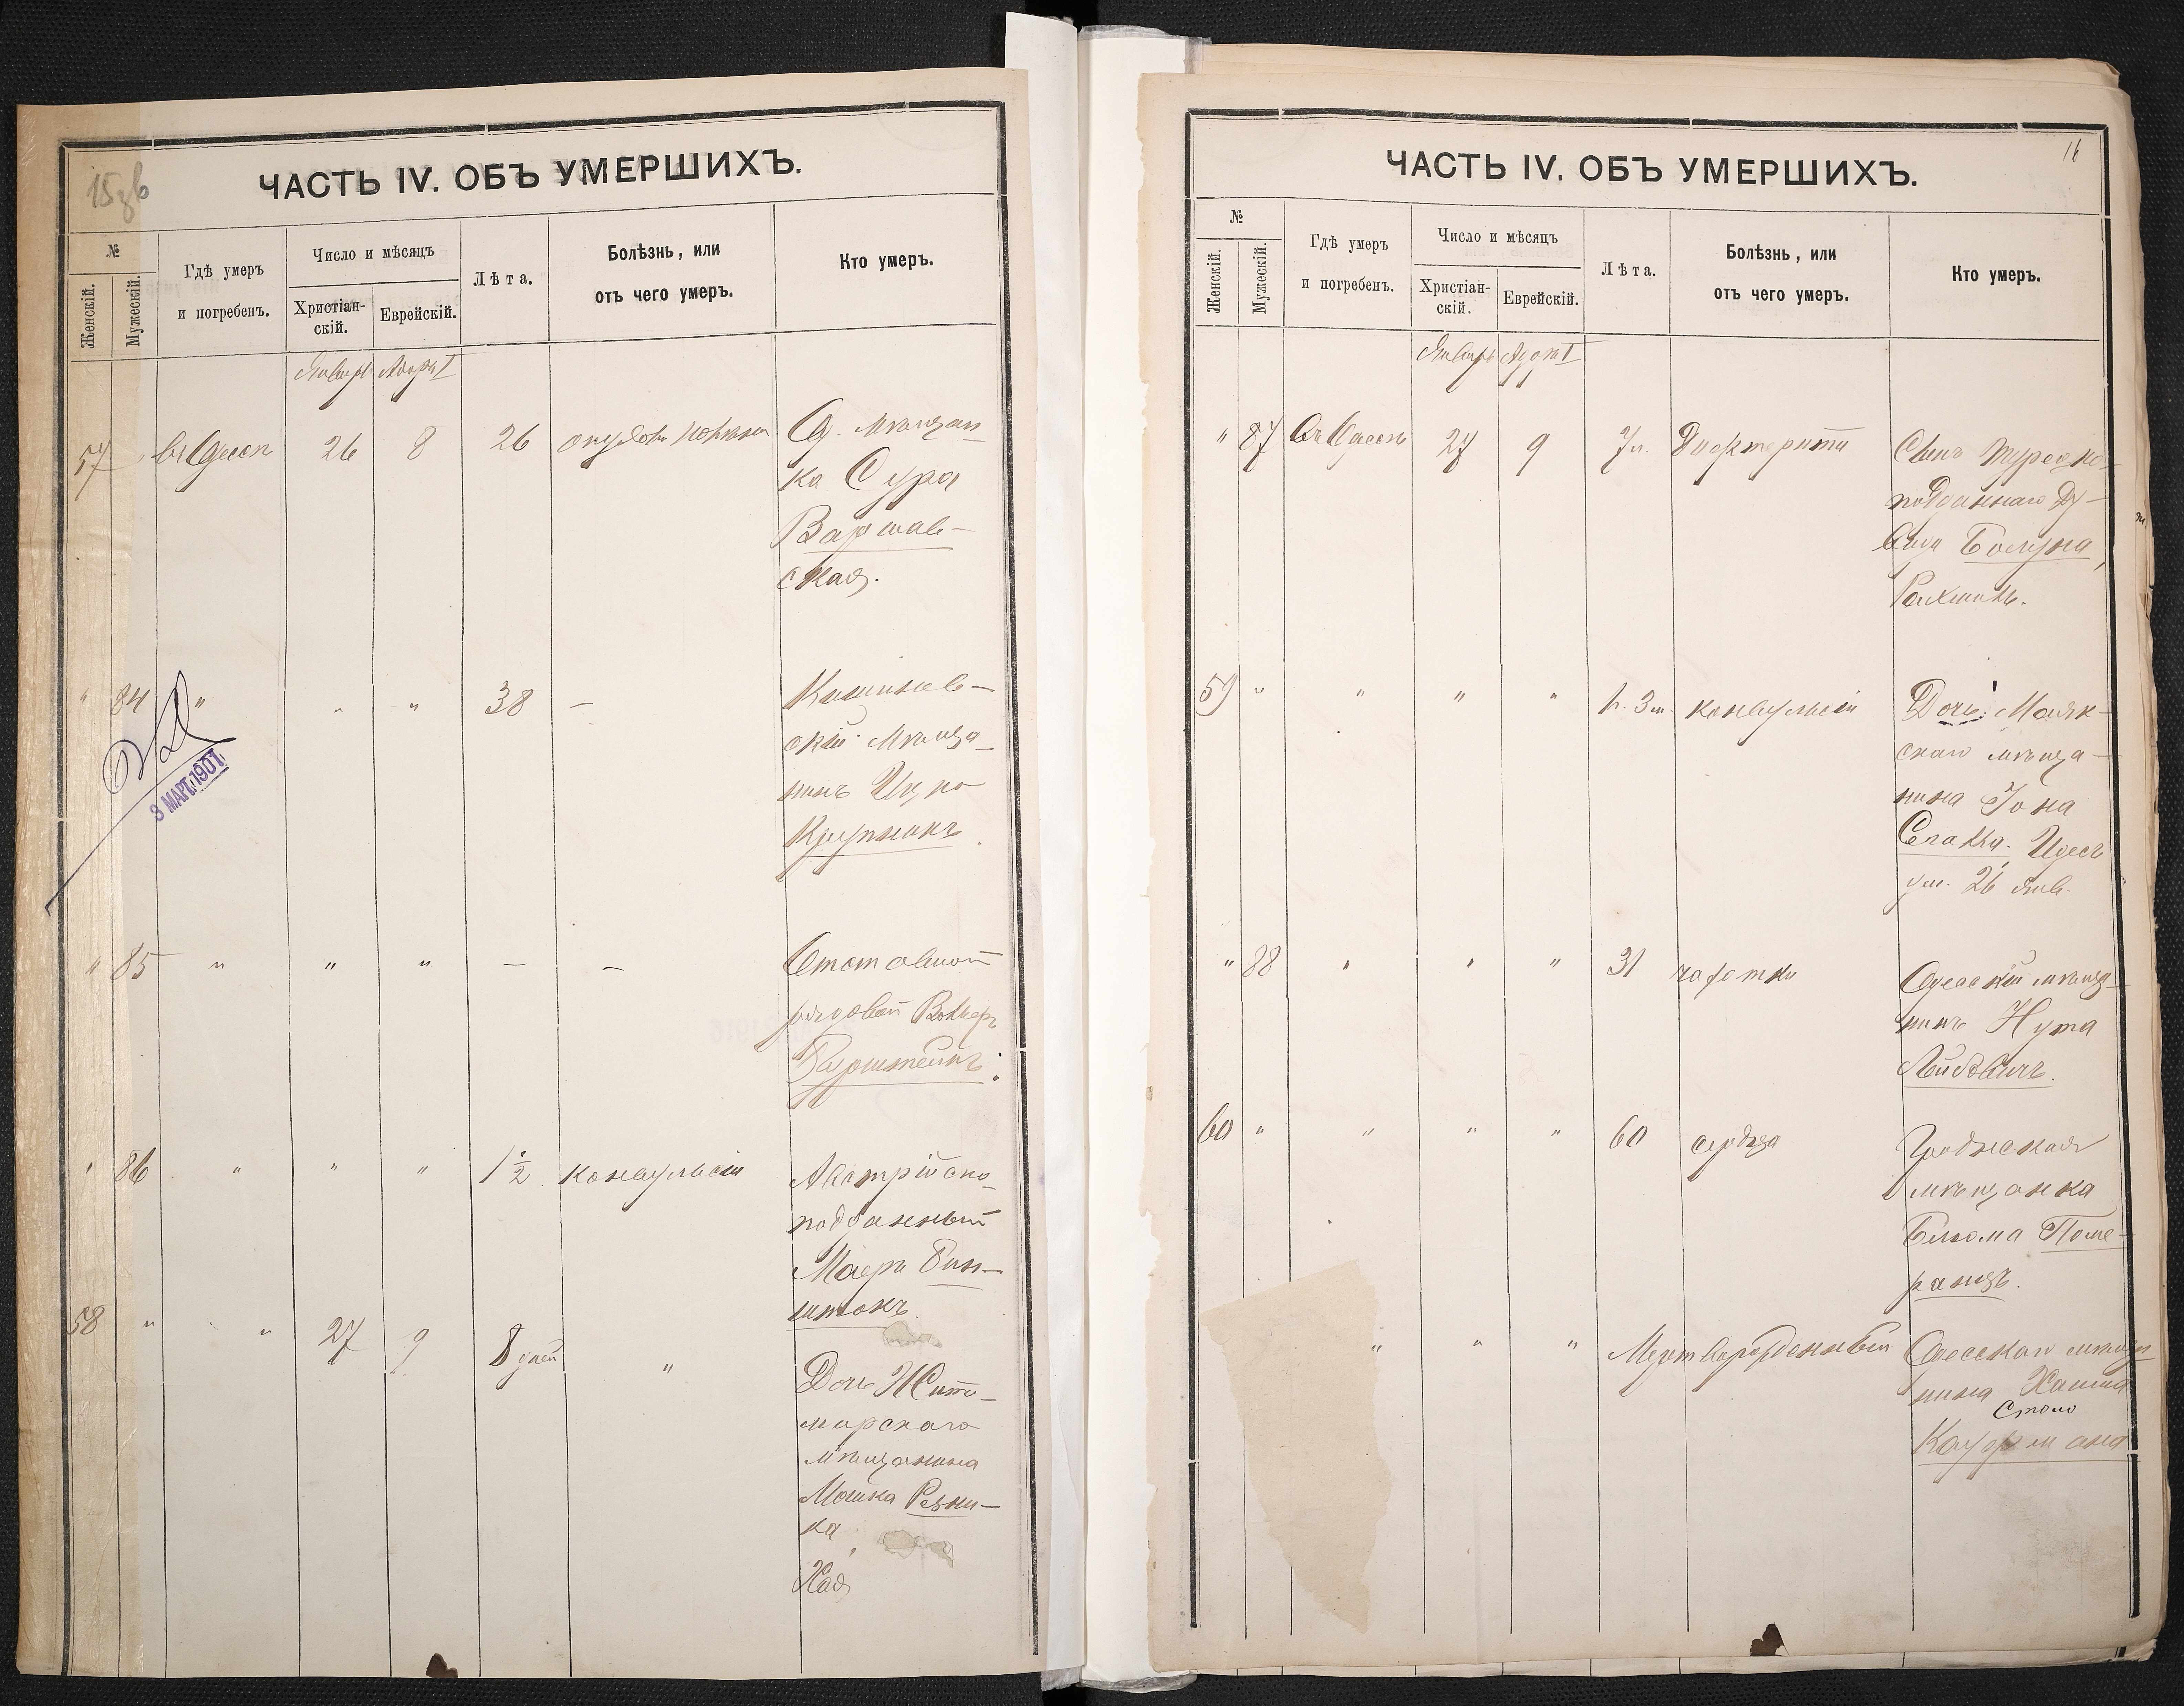 15 об
ЧАСТЬ IV. ОБЪ УМЕРШИХЪ.
№
Женскій.
Мужескій.
Гдѣ умеръ
и погребенъ.
Число и мѣсяцъ
Христіан-
скій.
Еврейскій.
Лѣта.
Болѣзнь, или
отъ чего умеръ.
Кто умеръ.
Январь Адаръ I
57 въ Одессѣ 26 8 26
Од. мѣщан-
ка Сура
Варшав-
ская.
" 84 " " " 38 —
Кишинев-
скій мѣща-
нинъ Ицко
Крупникъ.
3 МАРТ. 1901
" 85 " " " — —
Отставной
рядовой
Бурштейнъ.
" 86 " " " 1 1/2 конвульсіи
Австрійско-
подданный
Маеръ Бин-
штокъ.
58 " " 27 9 8 дней "
Дочь Жито-
мирскаго
мѣщанина
Мошка Резни-
ка,
Хая
16
ЧАСТЬ IV. ОБЪ УМЕРШИХЪ.
№
Женскій.
Мужескій.
Гдѣ умеръ
и погребенъ.
Число и мѣсяцъ
Христіан-
скій.
Еврейскій.
Лѣта.
Болѣзнь, или
отъ чего умеръ.
Кто умеръ.
Январь Адаръ I
" 87 Въ Одессѣ 27 9 7 л. Дифтеритъ
Сынъ турецко-
подданнаго Ду-
вида
Рахмиль.
59 " " " " 1 г. 3 м. конвульсіи
Дочь Маяк-
скаго мѣща-
нина Іона
Идесъ
ум. 26 янв.
" 88 " " " 31 чахотки
Одесскій мѣща-
нинъ Нута
Лейбовичъ.
60 " " " " 60 сердца
Гродненская
мѣщанка
Блюма Поме-
ранцъ.
" " " Мертворожденный
Одесскаго мѣща-
нина Хаима
Кауфмана